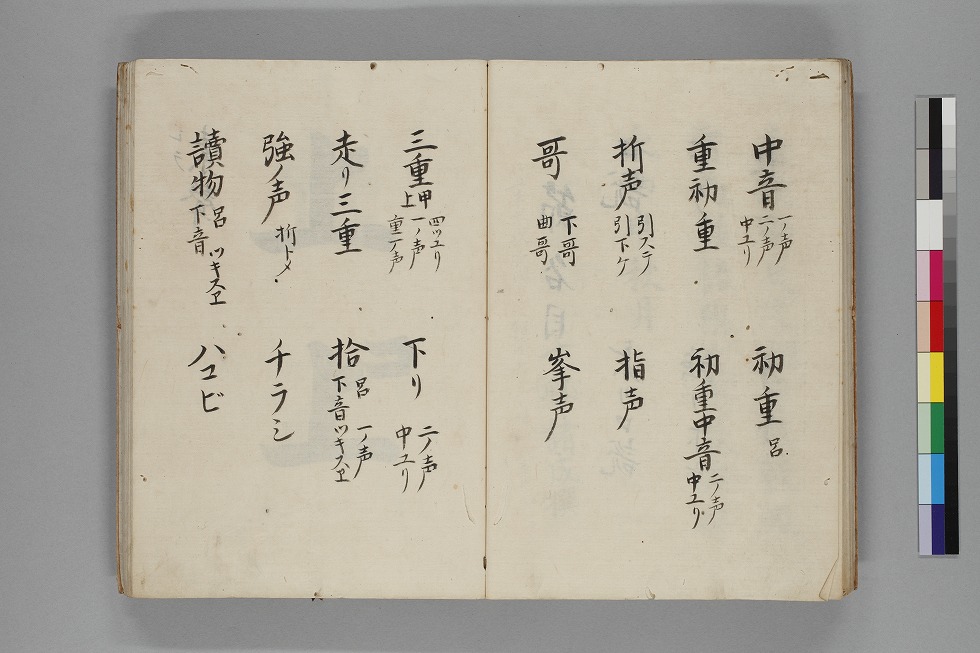 中音 一ノ声 二ノ声 中ユリ
初重 呂
重初重
初重中音 二ノ声 中ユリ
折声 引ステ 引下ケ
指声
哥 下哥 曲哥
峯声
三重 甲 上 四ツユリ 一ノ声 重一ノ声
下リ 二ノ声 中ユリ
走リ三重
拾 呂 下音 一ノ声 ツキスヱ
強ノ声 折トメ
チラシ
讀物 呂 下音 ツキスヱ
ハコビ